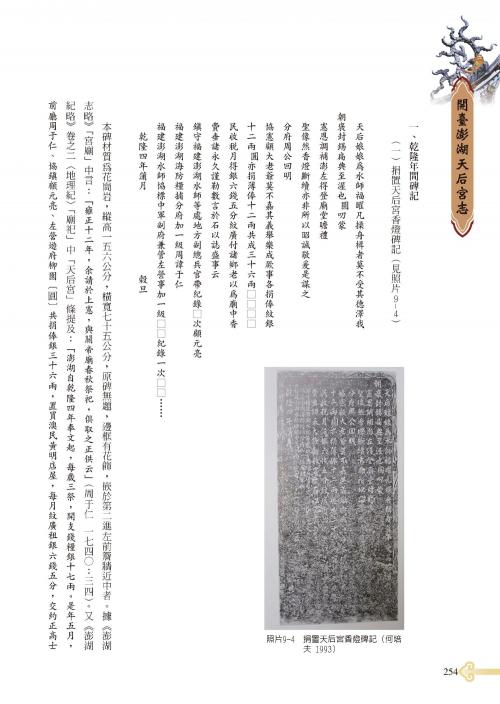 開臺澎湖天后宮志
一、乾隆年間碑記
（一）捐置天后宮香燈碑記（見照片9-4）
天后娘娘爲水師福曜凡操舟楫者莫不受其德澤我
朝褒封錫高典至渥也圓叨蒙
憲恩調補澎左得登廟堂瞻禮
聖像然香燈斷續亦非所以昭誠敬爰是謀之
分府周公回明
協憲顧大老爺莫不嘉其義舉樂成厥事各捐俸紋銀
十二兩圓亦捐薄俸十二兩共成三十六兩□□□□
民收稅月得銀六錢五分紋廣付諸鄉老以爲廟中香
費垂諸永久謹勒數言於石以誌盛事云
鎮守福建澎湖水師等處地方副總兵官帶紀錄□次顧元亮
福建澎湖海防糧捕分府加一級周諱于仁
福建澎湖水師協標中軍副府兼管左營事加一級□□紀錄一次□□……
乾隆四年蒲月　　穀旦
本碑材質爲花崗岩，縱高一五六公分，橫寬七十五公分，原碑無題，邊框有花飾，嵌於第二進左前簷牆近中者。據《澎湖
志略》「宮廟」中言：「雍正十二年，余請於上憲，與關帝廟春秋祭祀，俱取之正供云」（周于仁　一七四〇：三四）。又《澎湖
紀略》卷之二〈地理紀〉「廟祀」中「天后宮」條提及：「澎湖自乾隆四年奉文起，每歲三祭，開支錢糧銀十七兩。是年五月，
前廳周于仁、協鎮顧元亮、左營遊府柳圓［圓］共捐俸銀三十六兩，置買澳民黃明店屋，每月紋廣租銀六錢五分，交約正高士
照片9-4　捐置天后宮香燈碑記（何培
夫 1993）
254